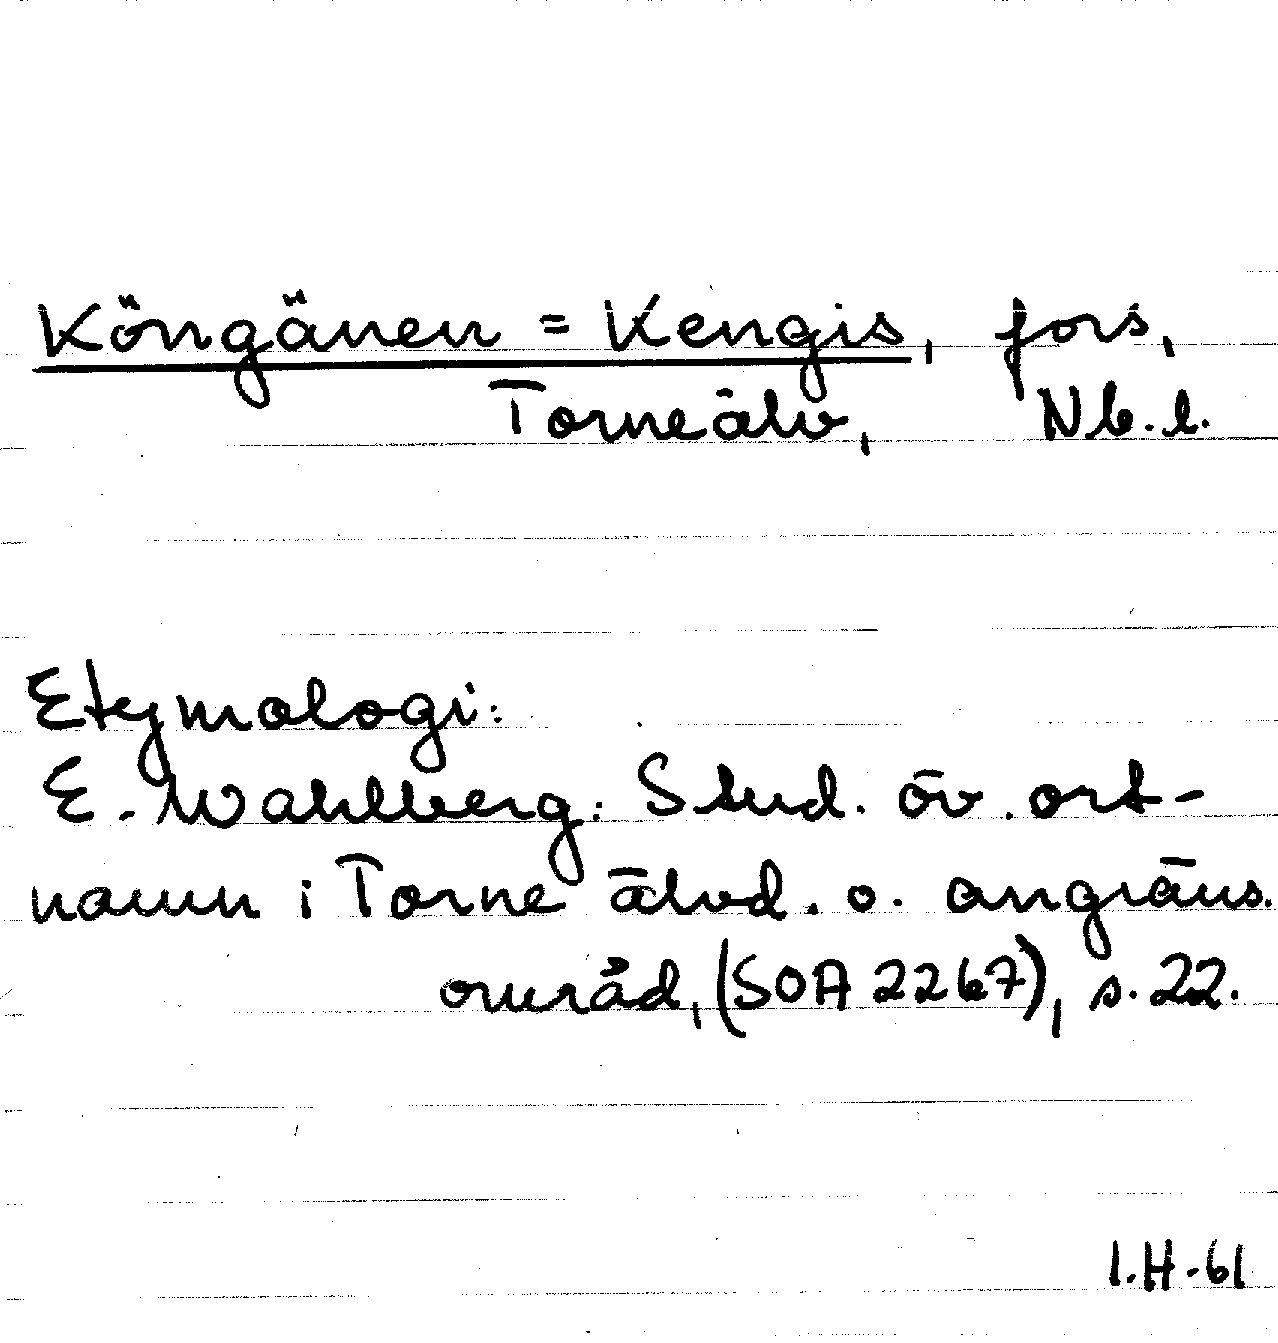 Köngänen = Kengis, fors,
Torneälv, Nb.l.
Etymologi:
E. Wahlberg: Stud. öv. ort-
namn i Torne älvd. o. angräns.
områd, (SOA 2267), s. 22.
I.H-61